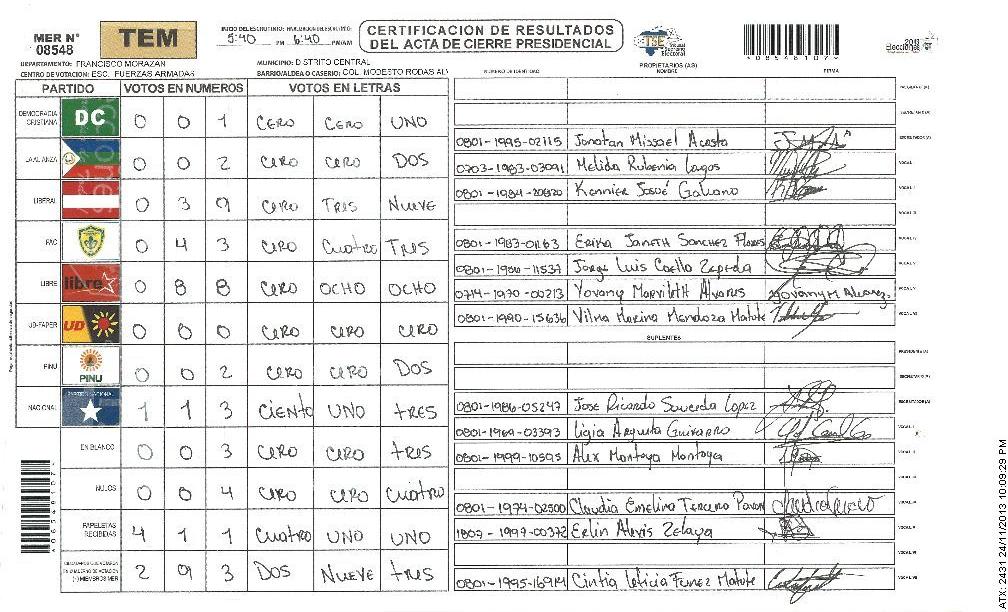 MER N° 08548
TEM
INICIO DEL ESCRUTINIO: FINALIZACION DEL ESCRUTINIO:
5:40 PM 6:40 PM/AM
CERTIFICACION DE RESULTADOS
DEL ACTA DE CIERRE PRESIDENCIAL
TSE Tribunal Supremo Electoral
2013 Elecciones
*08548107*
DEPARTAMENTO: FRANCISCO MORAZAN
MUNICIPIO: DISTRITO CENTRAL
CENTRO DE VOTACION: ESC. FUERZAS ARMADAS
BARRIO/ALDEA O CASERIO: COL. MODESTO RODAS ALV
PARTIDO VOTOS EN NUMEROS VOTOS EN LETRAS
DEMOCRACIA CRISTIANA DC 0 0 1 CERO CERO UNO
LA ALIANZA 0 0 2 CERO CERO DOS
LIBERAL 0 3 9 CERO TRES NUEVE
PAC 0 4 3 CERO CUATRO TRES
LIBRE libre 0 8 8 CERO OCHO OCHO
UD-FAPER UD 0 0 0 CERO CERO CERO
PINU PINU 0 0 2 CERO CERO DOS
NACIONAL 1 1 3 CIENTO UNO TRES
EN BLANCO 0 0 3 CERO CERO TRES
NULOS 0 0 4 CERO CERO CUATRO
PAPELETAS RECIBIDAS 4 1 1 CUATRO UNO UNO
2 9 3 DOS NUEVE TRES
*08548107*
NUMERO DE IDENTIDAD PROPIETARIOS (AS) NOMBRE FIRMA
PRESIDENTE (A)
SECRETARIO (A)
0801-1995-02115 Jonatan Missael Acosta ESCRUTADOR (A)
0703-1983-03091 Melida Rubenia Lagos VOCAL I
0801-1984-20820 Kennier Josué Galeano VOCAL II
VOCAL III
0801-1983-01163 Erika Janeth Sanchez Flores VOCAL IV
0801-1986-11537 Jorge Luis Coello Zepeda VOCAL V
0714-1970-00213 Yovany Marvileth Alvares yovany M Alvarez VOCAL VI
0801-1990-15636 Vilma Marina Mendoza Matute VOCAL VII
SUPLENTES
PRESIDENTE (A)
SECRETARIO (A)
0801-1986-05247 Jose Ricardo Sauceda Lopez ESCRUTADOR (A)
0801-1969-03393 Ligia Argueta Guivarro VOCAL I
0801-1999-10595 Alex Montoya Montoya VOCAL II
VOCAL III
0801-1974-02500 Claudia Emelina Tercero Pavon VOCAL IV
1807-1997-00372 Erlin Alexis Zelaya VOCAL V
VOCAL VI
0801-1995-16914 Cintia Leticia Funez Matute VOCAL VII
ATX: 2431 24/11/2013 10:09:29 PM